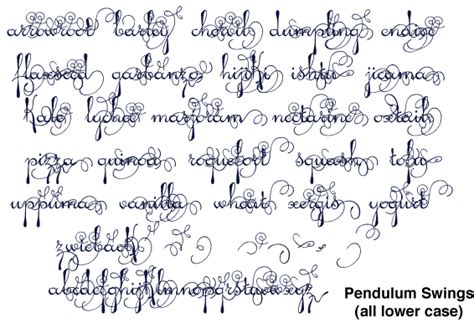 arrowroot barley chervil dumpling endive
flaxseed garbanzo hijiki ishtu jicama
kale lychee marjoram nectarine oxtail
pizza quinoa roquefort squash tofu
uppuma vanilla wheat xergis yogurt
zwieback
abcdefghijklmnopqrstuvwxyz
Pendulum Swings
(all lower case)